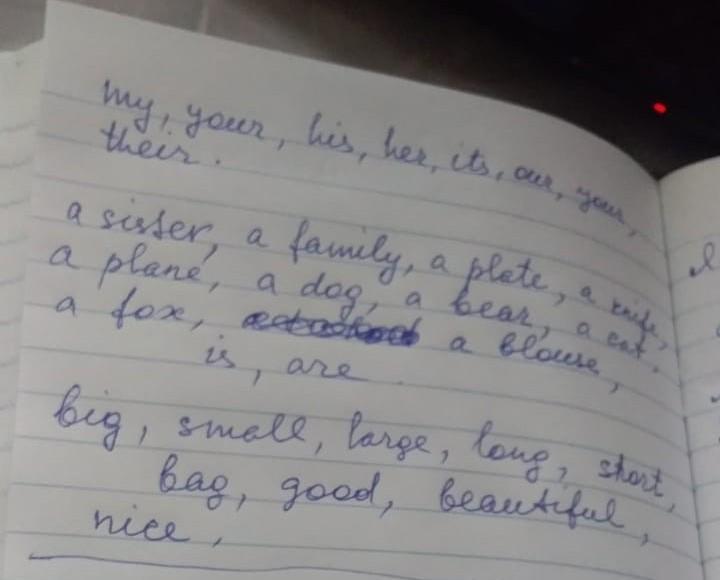 my, your, his, her, its, our, your,
their.
a sister, a family, a plate, a knife,
a plane, a dog, a bear, a cat.
a fox, a blouse,
is, are.
big, small, large, long, short,
bag, good, beautiful,
nice,